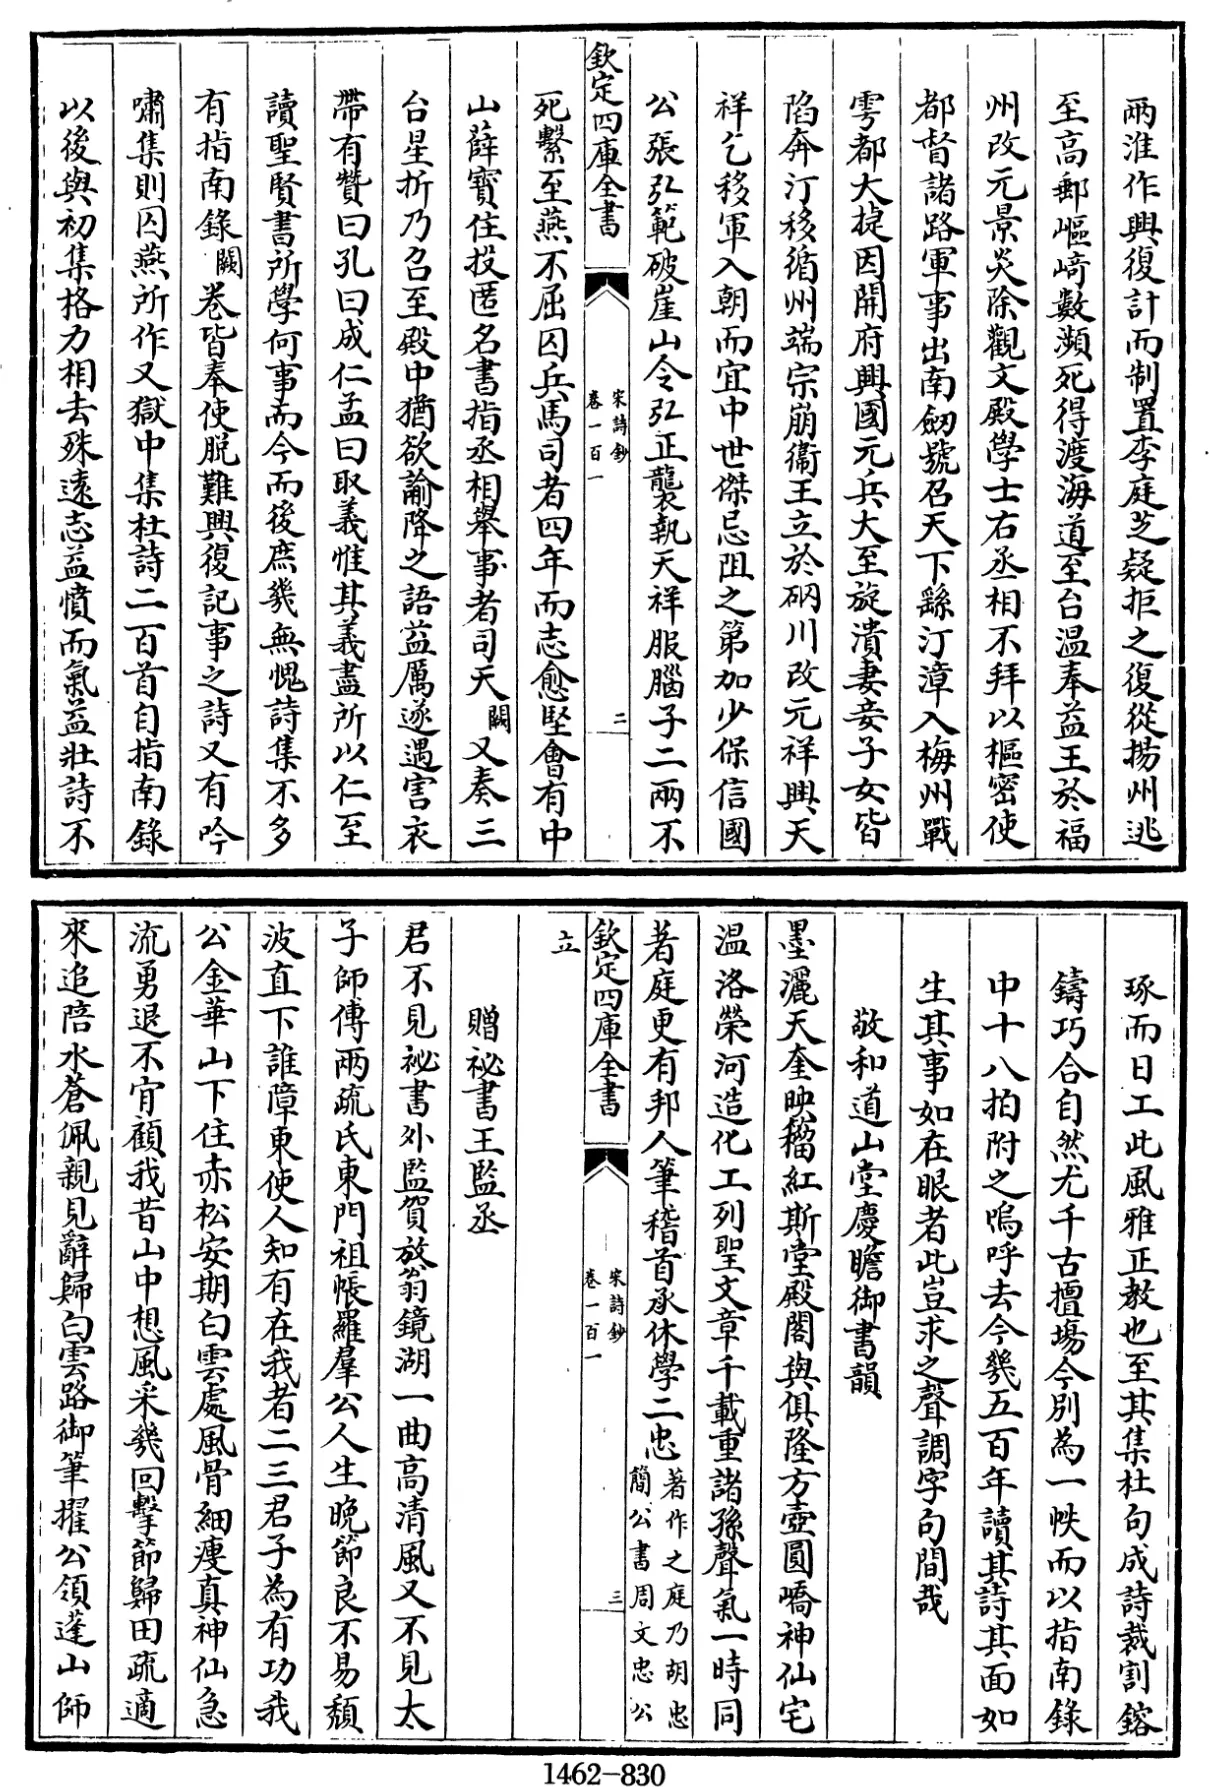 兩淮作興復計而制置李庭芝疑拒之復從揚州逃
至高郵嶇﨑數瀕死得渡海道至台温奉益王於福
州改元景炎除觀文殿學士右丞相不拜以樞密使
都督諸路軍事出南劒號召天下繇汀漳入梅州戰
雩都大捷因開府興國元兵大至旋潰妻妾子女皆
陷奔汀移循州端宗崩衞王立於硇川改元祥興天
祥乞移軍入朝而宜中世傑忌阻之第加少保信國
公張弘範破崖山令弘正襲執天祥服腦子二兩不
欽定四庫全書
宋詩鈔
卷一百一
二
死繫至燕不屈囚兵馬司者四年而志愈堅會有中
山薛寳住投匿名書指丞相舉事者司天闕又奏三
台星折乃召至殿中猶欲諭降之語益厲遂遇害衣
帶有贊曰孔曰成仁孟曰取義惟其義盡所以仁至
讀聖賢書所學何事而今而後庶幾無愧詩集不多
有指南錄闕卷皆奉使脱難興復記事之詩又有吟
嘯集則囚燕所作又獄中集杜詩二百首自指南錄
以後與初集格力相去殊遠志益憤而氣益壯詩不
琢而日工此風雅正教也至其集杜句成詩裁割鎔
鑄巧合自然尤千古擅場今別為一帙而以指南錄
中十八拍附之嗚呼去今幾五百年讀其詩其面如
生其事如在眼者此豈求之聲調字句間哉
敬和道山堂慶瞻御書韻
墨灑天奎映籀紅斯堂殿閣與俱隆方壺圓嶠神仙宅
温洛榮河造化工列聖文章千載重諸孫聲氣一時同
著庭更有邦人筆稽首承休學二忠著作之庭乃胡忠
簡公書周文忠公
欽定四庫全書
宋詩鈔
卷一百一
三
立
贈祕書王監丞
君不見祕書外監賀放翁鏡湖一曲高清風又不見太
子師傅兩疏氏東門祖帳羅羣公人生晚節良不易頽
波直下誰障東使人知有在我者二三君子為有功我
公金華山下住赤松安期白雲處風骨細瘦真神仙急
流勇退不肯顧我昔山中想風采幾回擊節歸田疏適
來追陪水蒼佩親見辭歸白雲路御筆擢公領蓬山師
1462-830